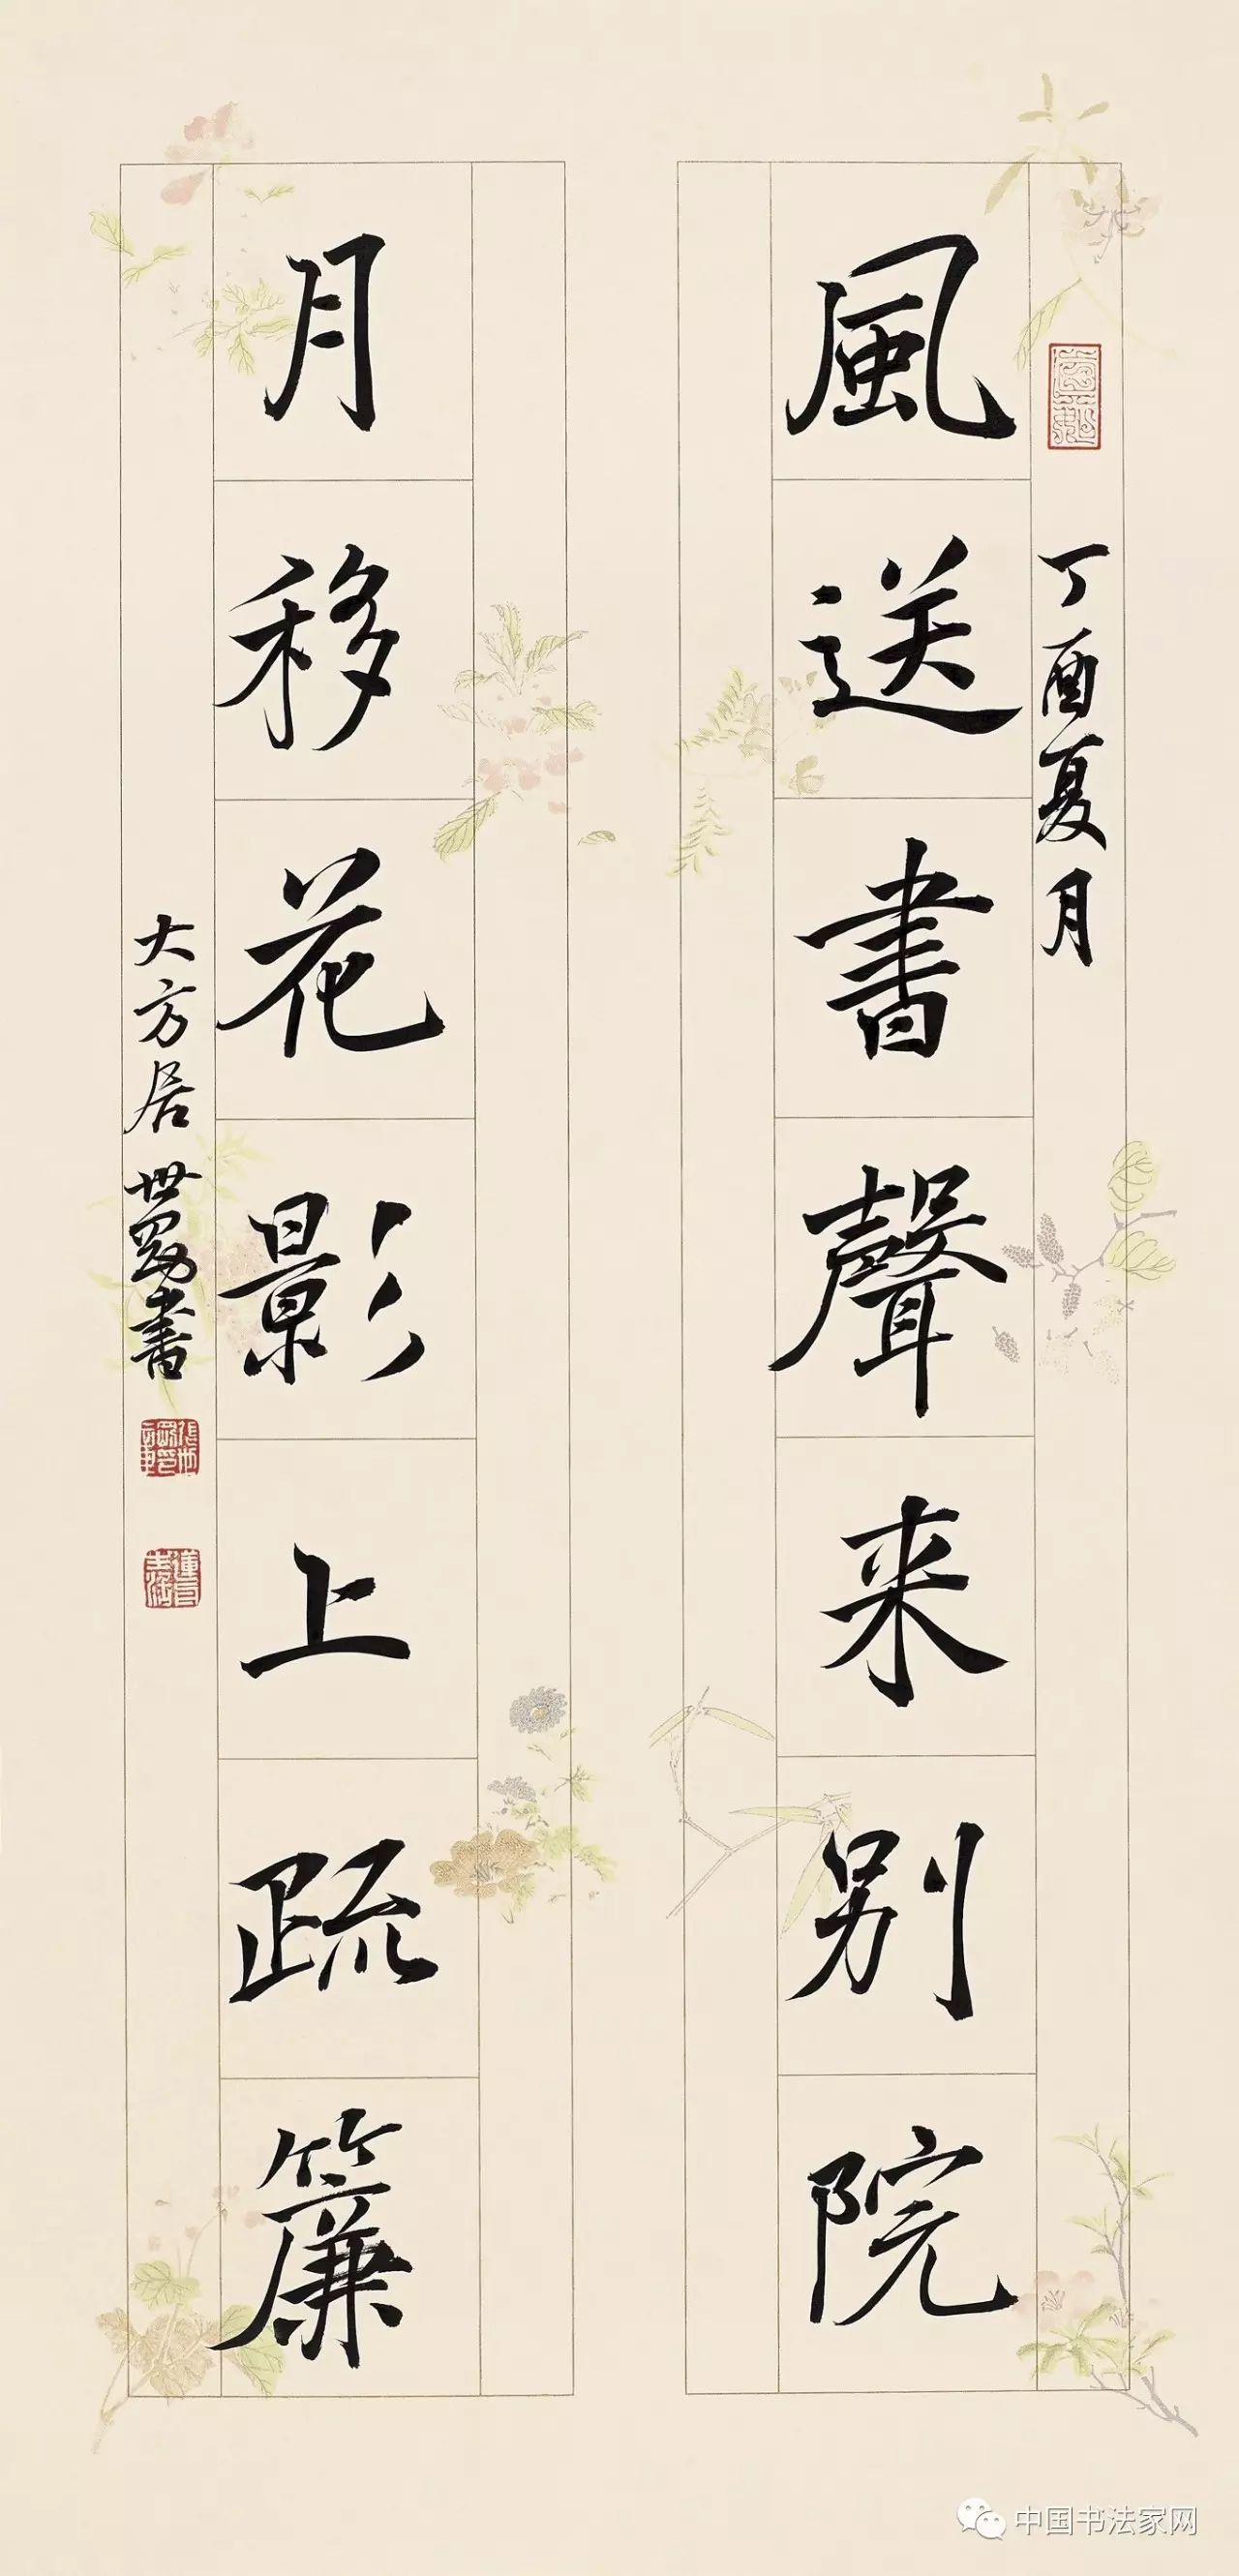 丁酉夏月
風送書聲来别院
月移花影上疏簾
大方居世罡書
中国书法家网